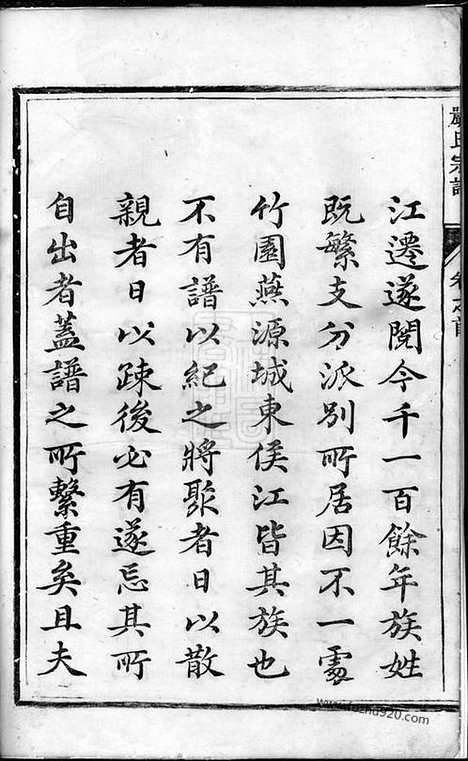 嚴氏宗譜
卷之首
江遷遂閱今千一百餘年族姓
既繁支分派別所居因不一處
竹園燕源城東侯江皆其族也
不有譜以紀之將聚者日以散
親者日以疎後必有遂忘其所
自出者蓋譜之所繫重矣且夫
www.fuzhu920.com